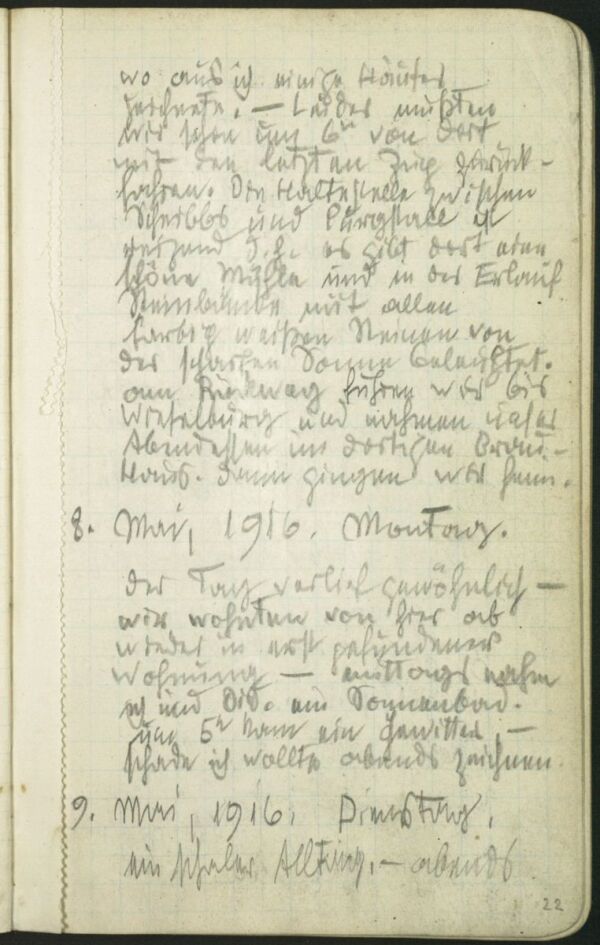 wo aus ich einige Häuser
zeichnete. — Leider mußten
wir schon um 6ʰ von dort
mit den letzten Zug zurück-
fahren. Die Haltestelle zwischen
Scheibbs und Purgstall ist
reizend d.h. es gibt dort eine
schöne Mühle und in der Erlauf
Steinbänke mit allen
farbig weißen Steinen von
der scharfen Sonne beleuchtet.
am Rückweg fuhren wir bis
Wieselburg und nahmen unser
Abendessen im dortigen Brau-
Haus. dann gingen wir heim.
8. Mai, 1916. Montag.
der Tag verlief gewöhnlich —
wir wohnten von hier ab
wieder in erst gefundener
Wohnung — mittags nahm
ich und Did. ein Sonnenbad.
um 5ʰ kam ein Gewitter, —
schade ich wollte abends zeichnen
9. Mai, 1916. Dienstag.
ein schaler Alltag. — abends
22